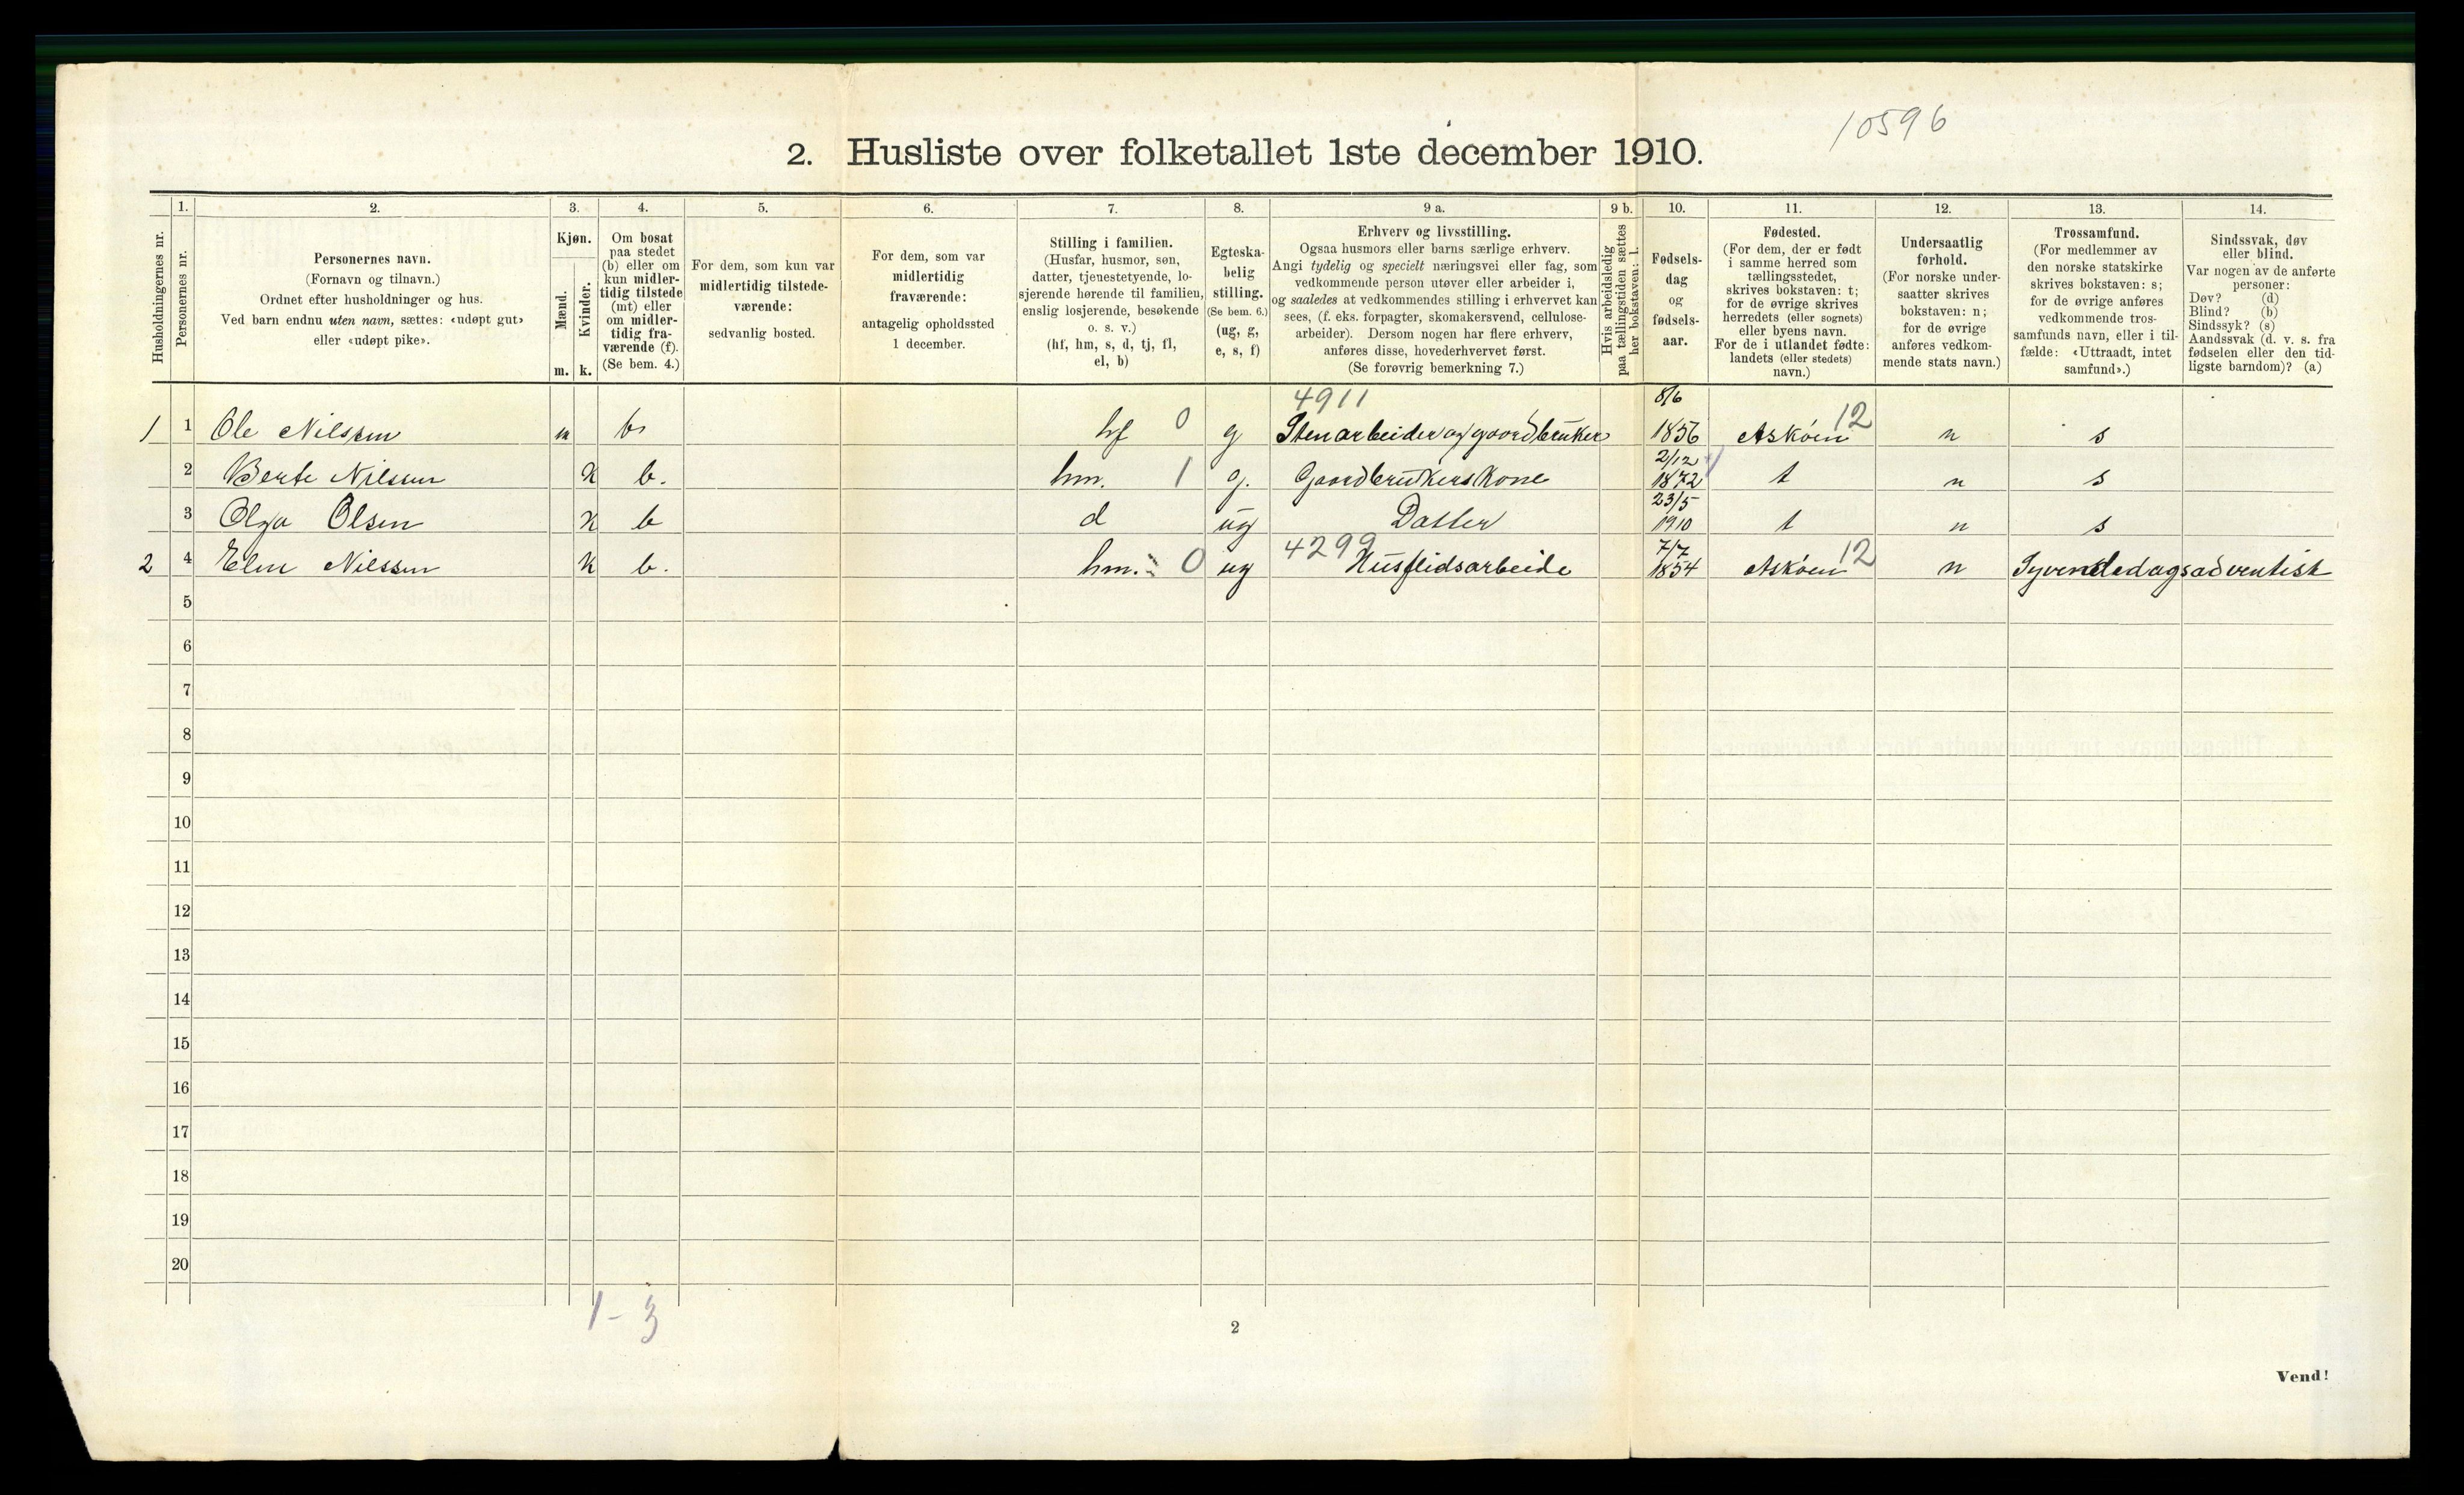 10596
2. Husliste over folketallet 1ste december 1910.
Husholdningernes nr.
1.
Personernes nr.
2.
Personernes navn.
(Fornavn og tilnavn.)
Ordnet efter husholdninger og hus.
Ved barn endnu uten navn, sættes: «udøpt gut»
eller «udøpt pike».
3.
Kjøn.
Mænd.
Kvinder.
m.
k.
4.
Om bosat
paa stedet
(b) eller om
kun midler-
tidig tilstede
(mt) eller
om midler-
tidig fra-
værende (f).
(Se bem. 4.)
5.
For dem, som kun var
midlertidig tilstede-
værende:
sedvanlig bosted.
6.
For dem, som var
midlertidig
fraværende:
antagelig opholdssted
1 december.
7.
Stilling i familien.
(Husfar, husmor, søn,
datter, tjenestetyende, lo-
sjerende hørende til familien,
enslig losjerende, besøkende
o. s. v.)
(hf, hm, s, d, tj, fl,
el, b)
8.
Egteska-
belig
stilling.
(Se bem. 6.)
(ug, g,
e, s, f)
9 a.
Erhverv og livsstilling.
Ogsaa husmors eller barns særlige erhverv.
Angi tydelig og specielt næringsvei eller fag, som
vedkommende person utøver eller arbeider i,
og saaledes at vedkommendes stilling i erhvervet kan
sees, (f. eks. forpagter, skomakersvend, cellulose-
arbeider). Dersom nogen har flere erhverv,
anføres disse, hovederhvervet først.
(Se forøvrig bemerkning 7.)
9 b.
Hvis arbeidsledig
paa tællingstiden sættes
her bokstaven: l.
10.
Fødsels-
dag
og
fødsels-
aar.
11.
Fødested.
(For dem, der er født
i samme herred som
tællingsstedet,
skrives bokstaven: t;
for de øvrige skrives
herredets (eller sognets)
eller byens navn.
For de i utlandet fødte:
landets (eller stedets)
navn.)
12.
Undersaatlig
forhold.
(For norske under-
saatter skrives
bokstaven: n;
for de øvrige
anføres vedkom-
mende stats navn.)
13.
Trossamfund.
(For medlemmer av
den norske statskirke
skrives bokstaven: s;
for de øvrige anføres
vedkommende tros-
samfunds navn, eller i til-
fælde: «Uttraadt, intet
samfund».)
14.
Sindssvak, døv
eller blind.
Var nogen av de anførte
personer:
Døv? (d)
Blind? (b)
Sindssyk? (s)
Aandssvak (d. v. s. fra
fødselen eller den tid-
ligste barndom)? (a)
4911 8/6
1 1 Ole Nilssen m b. hf 0 g Stenarbeider og gaardbruker 1856 Askøen 12 n s
2/12
2 Berte Nilssen k b. hm. 1 g. Gaardbrukers Kone 1872 t n s
23/5
3 Olga Olsen k b d ug Datter 1910 t n s
4299 7/7
2 4 Elen Nilssen k b. hm. 0 ug Husflidsarbeide 1854 Askøen 12 n Syvendedagsadventist
5
6
7
8
9
10
11
12
13
14
15
16
17
18
19
20
1 - 3
2
Vend!